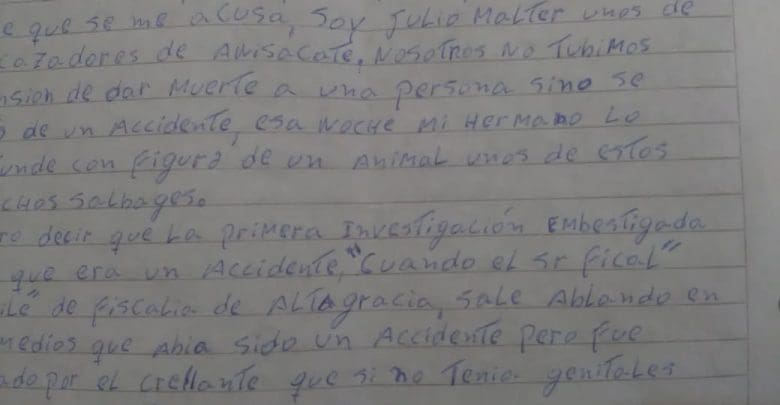 e que se me acusa, Soy Julio Malter unos de
cazadores de ANisacate, Nosotros No Tubimos
nsion de dar Muerte a una persona sino se
de un Accidente, esa Noche Mi Hermano Lo
unde con Figura de un Animal unos de estos
chos salbages.
ro decir que La primera Investigación EMbestigada
que era un Accidente, "Cuando el Sr Fical"
ile" de Fiscalia de ALTAgracia, sale Ablando en
medios que Abia sido un Accidente pero fue
ado por el crellante que si no Tenia genitales